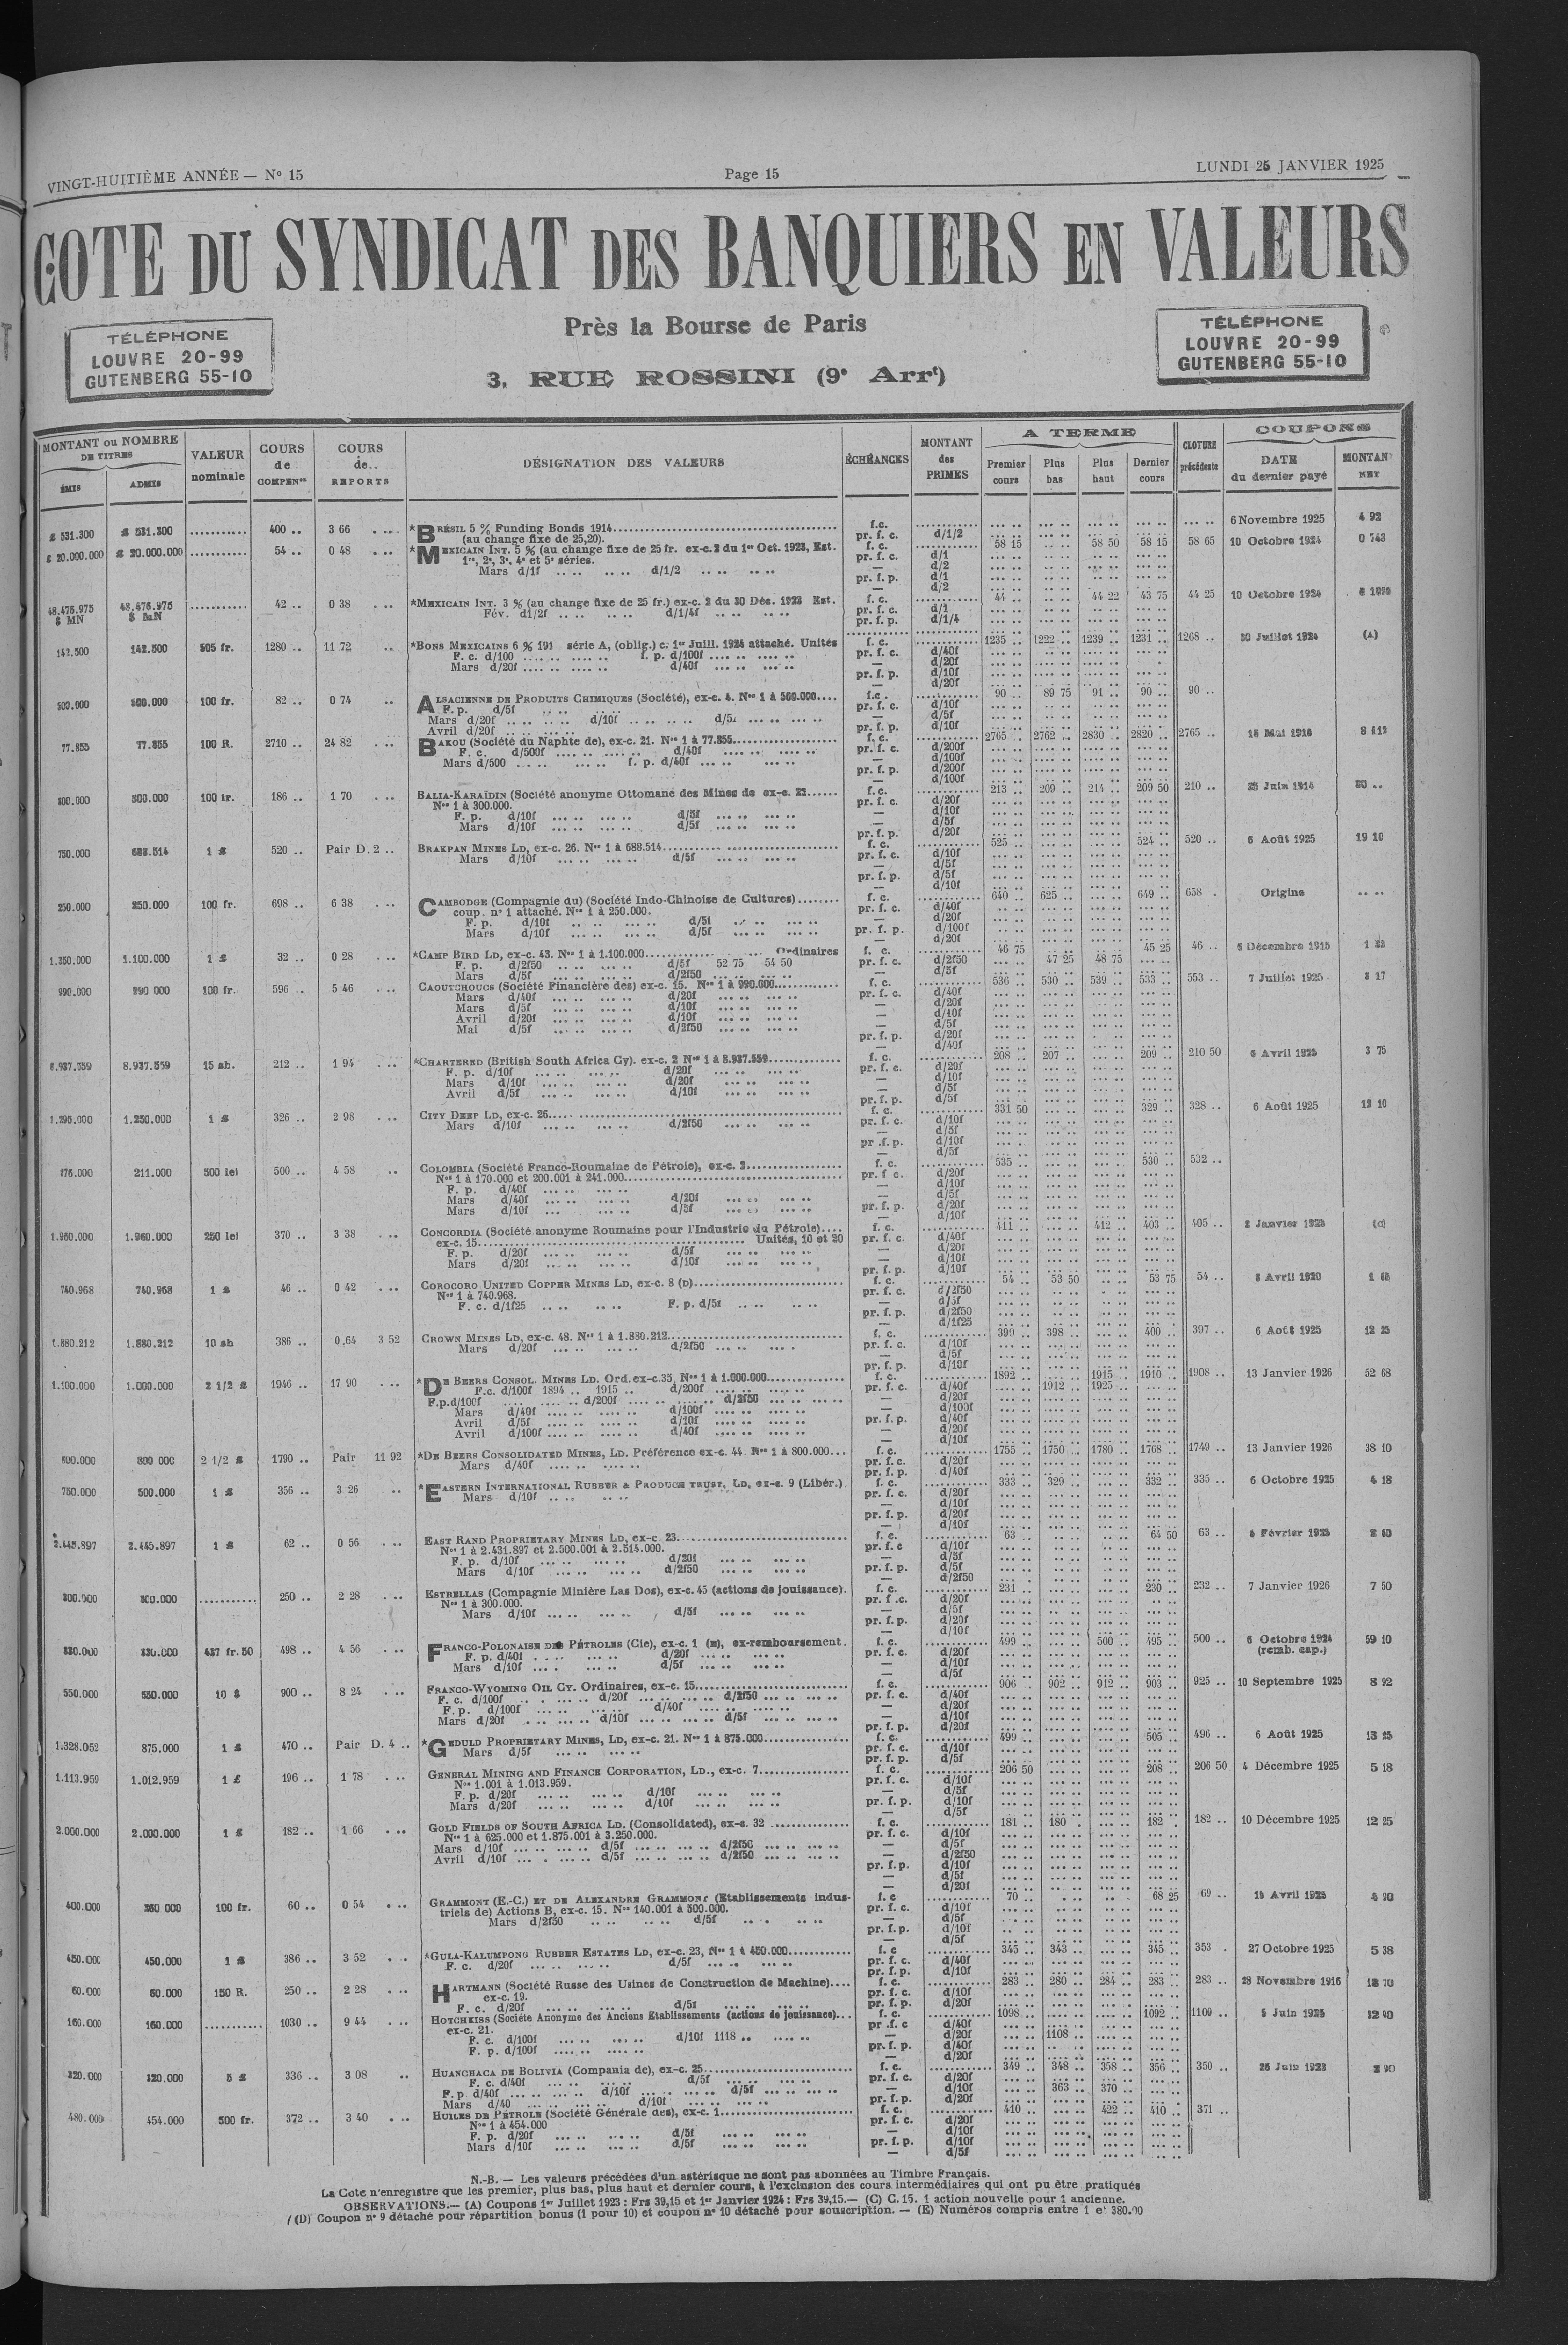 VINGT-HUITIÈME ANNÉE — N° 15
Page 15
LUNDI 25 JANVIER 1925
COTE DU SYNDICAT DES BANQUIERS EN VALEURS
TÉLÉPHONE
LOUVRE 20-99
GUTENBERG 55-10
Près la Bourse de Paris
3, RUE ROSSINI (9e Arrt)
TÉLÉPHONE
LOUVRE 20-99
GUTENBERG 55-10
MONTANT ou NOMBRE DE TITRES
ÉMIS
ADMIS
VALEUR nominale
COURS de COMPENon
COURS de REPORTS
DÉSIGNATION DES VALEURS
ÉCHÉANCES
MONTANT des PRIMES
A TERME
Premier cours
Plus bas
Plus haut
Dernier cours
CLOTURE précédente
COUPONS
DATE du dernier payé
MONTANT NET
£ 531.300 £ 531.300 ........... 400 .. 3 66 *BRÉSIL 5 % Funding Bonds 1914 f.c. 6 Novembre 1925 4 92
(au change fixe de 25,20). pr. f. c. d/1/2
£ 20.000.000 £ 20.000.000 ........... 54 .. 0 48 *MEXICAIN INT. 5 % (au change fixe de 25 fr. ex-c. 2 du 1er Oct. 1923, Est. f. c. 58 15 58 50 58 15 58 65 10 Octobre 1924 0 743
1re, 2e, 3e, 4e et 5e séries. pr. f. c. d/1
Mars d/1f d/1/2
48.476.975 $ MN 48.476.975 $ MN ........... 42 .. 0 38 *MEXICAIN INT. 3 % (au change fixe de 25 fr.) ex-c. 2 du 30 Déc. 1923 Est. f. c. 44 .. 44 22 43 75 44 25 10 Octobre 1924
142.500 142.500 505 fr. 1280 .. 11 72 *BONS MEXICAINS 6 % 191 série A, (oblig.) c. 1er Juill. 1924 attaché. Unités f. c. 1235 .. 1222 .. 1239 .. 1231 .. 1268 .. 30 Juillet 1924 (A)
F. c. d/100 f. p. d/100f
Mars d/20f d/40f
500.000 500.000 100 fr. 82 .. 0 74 ALSACIENNE DE PRODUITS CHIMIQUES (Société), ex-c. 4. Nos 1 à 500.000 f.c. 90 .. 89 75 91 .. 90 .. 90 ..
F. p. d/5f
Mars d/20f d/10f
Avril d/20f
77.855 77.855 100 R. 2710 .. 24 82 BAKOU (Société du Naphte de), ex-c. 21. Nos 1 à 77.855 f. c. 2765 .. 2762 .. 2830 .. 2820 .. 2765 .. 16 Mai 1916
F. c. d/500f d/40f
Mars d/500 f. p. d/40f
300.000 300.000 100 fr. 186 .. 1 70 BALIA-KARAÏDIN (Société anonyme Ottomane des Mines de ex-c. 21 f.c. 213 .. 209 .. 214 .. 209 50 210 .. 25 Juin 1914
Nos 1 à 300.000.
F. p. d/10f d/5f
Mars d/10f d/5f
750.000 688.514 1 £ 520 .. Pair D. 2 .. BRAKPAN MINES LD, ex-c. 26. Nos 1 à 688.514 f. c. 525 .. 524 .. 520 .. 6 Août 1925 19 10
Mars d/10f d/5f
250.000 250.000 100 fr. 698 .. 6 38 CAMBODGE (Compagnie du) (Société Indo-Chinoise de Cultures) f. c. 640 .. 625 .. 649 .. 658 . Origine
coup. n° 1 attaché. Nos 1 à 250.000.
F. p. d/10f d/5f
Mars d/10f d/5f
1.350.000 1.100.000 1 £ 32 .. 0 28 *CAMP BIRD LD, ex-c. 43. Nos 1 à 1.100.000 Ordinaires f. c. 46 75 45 25 46 .. 6 Décembre 1915
F. p. d/2f50 d/5f 52 75 54 50 pr. f. c. d/2f50 47 25 48 75
Mars d/5f d/2f50
990.000 990 000 100 fr. 596 .. 5 46 CAOUTCHOUCS (Société Financière des) ex-c. 15. Nos 1 à 990.000 f. c. 536 .. 530 .. 539 .. 533 .. 553 .. 7 Juillet 1925 3 17
Mars d/40f d/20f
Mars d/5f d/10f
Avril d/20f d/10f
Mai d/5f d/2f50
8.937.559 8.937.559 15 sh. 212 .. 1 94 *CHARTERED (British South Africa Cy). ex-c. 2 Nos 1 à 8.937.559 f. c. 208 .. 207 .. 209 .. 210 50 6 Avril 1925 3 75
F. p. d/10f d/20f
Mars d/10f d/20f
Avril d/5f d/10f
1.295.000 1.250.000 1 £ 326 .. 2 98 CITY DEEP LD, ex-c. 26 f. c. 331 50 329 .. 328 .. 6 Août 1925
Mars d/10f d/2f50
276.000 211.000 500 lei 500 .. 4 58 COLOMBIA (Société Franco-Roumaine de Pétrole), ex-c. 2 f. c. 535 .. 530 .. 532 ..
Nos 1 à 170.000 et 200.001 à 241.000
F. p. d/40f
Mars d/40f d/20f
Mars d/10f d/5f
1.960.000 1.960.000 250 lei 370 .. 3 38 CONCORDIA (Société anonyme Roumaine pour l'Industrie du Pétrole) f. c. 411 .. 412 .. 403 .. 405 .. 2 Janvier 1923 (C)
ex-c. 15 Unités, 10 et 20
F. p. d/20f d/5f
Mars d/20f d/10f
740.968 740.968 1 £ 46 .. 0 42 COROCORO UNITED COPPER MINES LD, ex-c. 8 (D) f. c. 54 .. 53 50 53 75 54 .. 8 Avril 1920
Nos 1 à 740.968.
F. c. d/1f25 F. p. d/5f
1.880.212 1.880.212 10 sh 386 .. 0,64 3 52 CROWN MINES LD, ex-c. 48. Nos 1 à 1.880.212 f. c. 399 .. 398 .. 400 .. 397 .. 6 Août 1925 12 25
Mars d/20f d/2f50
1.100.000 1.000.000 2 1/2 £ 1946 .. 17 90 *DE BEERS CONSOL. MINES LD. Ord. ex-c. 35, Nos 1 à 1.000.000 f. c. 1892 .. 1915 .. 1910 .. 1908 .. 13 Janvier 1926 52 68
F.c. d/100f 1894 .. 1915 .. d/200f pr. f. c. d/40f 1912 .. 1925 ..
F.p. d/100f d/200f d/2f50
Mars d/40f d/100f
Avril d/5f d/10f
Avril d/100f d/40f
800.000 800 000 2 1/2 £ 1790 .. Pair 11 92 *DE BEERS CONSOLIDATED MINES, LD. Préférence ex-c. 44. Nos 1 à 800.000 f. c. 1755 .. 1750 .. 1780 .. 1768 .. 1749 .. 13 Janvier 1926 38 10
Mars d/40f
750.000 500.000 1 £ 356 .. 3 26 *EASTERN INTERNATIONAL RUBBER & PRODUCE TRUST, LD, ex-c. 9 (Libér.) f. c. 333 .. 329 .. 332 .. 335 .. 6 Octobre 1925 4 18
Mars d/10f
2.445.897 2.445.897 1 £ 62 .. 0 56 EAST RAND PROPRIETARY MINES LD, ex-c. 23 f. c. 63 .. 64 50 63 .. Février 1923
Nos 1 à 2.431.897 et 2.500.001 à 2.514.000.
F. p. d/10f d/20f
Mars d/10f d/2f50
300.000 300.000 ........... 250 .. 2 28 ESTRELLAS (Compagnie Minière Las Dos), ex-c. 45 (actions de jouissance). f. c. 231 .. 230 .. 232 .. 7 Janvier 1926 7 50
Nos 1 à 300.000.
Mars d/10f d/5f
330.000 330.000 437 fr. 50 498 .. 4 56 FRANCO-POLONAISE DES PÉTROLES (Cie), ex-c. 1 (E), ex-remboursement. f. c. 499 .. 500 .. 495 .. 500 .. 6 Octobre 1924 (remb. cap.) 59 10
F. p. d/40f d/20f
Mars d/10f d/5f
550.000 550.000 10 $ 900 .. 8 24 FRANCO-WYOMING OIL CY. Ordinaires, ex-c. 15 f. c. 906 .. 902 .. 912 .. 903 .. 925 .. 10 Septembre 1925 8 92
F. c. d/100f d/20f d/2f50
F. p. d/100f d/40f
Mars d/20f d/10f d/5f
1.328.052 875.000 1 £ 470 .. Pair D. 4 .. *GEDULD PROPRIETARY MINES, LD, ex-c. 21. Nos 1 à 875.000 f. c. 499 .. 505 .. 496 .. 6 Août 1925
Mars d/5f
1.113.959 1.012.959 1 £ 196 .. 1 78 GENERAL MINING AND FINANCE CORPORATION, LD., ex-c. 7 f. c. 206 50 208 .. 206 50 4 Décembre 1925 5 18
Nos 1.001 à 1.013.959.
F. p. d/20f d/10f
Mars d/20f d/10f
2.000.000 2.000.000 1 £ 182 .. 1 66 GOLD FIELDS OF SOUTH AFRICA LD. (Consolidated), ex-c. 32 f. c. 181 .. 180 . 182 . 182 .. 10 Décembre 1925 12 25
Nos 1 à 625.000 et 1.875.001 à 3.250.000.
Mars d/10f d/5f d/2f50
Avril d/10f d/5f d/2f50
400.000 350 000 100 fr. 60 .. 0 54 GRAMMONT (E.-C.) ET DE ALEXANDRE GRAMMONT (Etablissements indus- f. c 70 .. 68 25 69 .. 15 Avril 1925
triels de) Actions B, ex-c. 15. Nos 140.001 à 500.000.
Mars d/2f50 d/5f
450.000 450.000 1 £ 386 .. 3 52 *GULA-KALUMPONG RUBBER ESTATES LD, ex-c. 23, Nos 1 à 450.000 f. c 345 .. 343 .. 345 .. 353 . 27 Octobre 1925 5 38
F. c. d/20f d/5f
60.000 60.000 150 R. 250 .. 2 28 HARTMANN (Société Russe des Usines de Construction de Machine) f. c. 283 .. 280 .. 284 .. 283 .. 283 .. 28 Novembre 1916
ex-c. 19.
F. c. d/20f d/5f
160.000 160.000 ........... 1030 .. 9 44 HOTCHKISS (Société Anonyme des Anciens Etablissements (actions de jouissance) f. c. 1098 .. 1092 .. 1100 .. 5 Juin 1925
ex-c. 21.
F. c. d/100f d/10f 1118 .. d/20f 1108 ..
F. p. d/100f
320.000 320.000 5 £ 336 .. 3 08 HUANCHACA DE BOLIVIA (Compania de), ex-c. 25 f. c. 349 .. 348 .. 358 .. 356 .. 350 .. 26 Juin 1923
F. c. d/40f d/5f
F. p. d/40f d/10f d/5f d/10f 363 .. 370 ..
Mars d/40 d/10f
480.000 454.000 500 fr. 372 .. 3 40 HUILES DE PÉTROLE (Société Générale des), ex-c. 1 f. c. 410 .. 422 .. 410 .. 371 ..
Nos 1 à 454.000
F. p. d/20f d/5f
Mars d/10f d/5f
N.-B. — Les valeurs précédées d'un astérisque ne sont pas abonnées au Timbre Français.
La Cote n'enregistre que les premier, plus bas, plus haut et dernier cours, à l'exclusion des cours intermédiaires qui ont pu être pratiqués
OBSERVATIONS.— (A) Coupons 1er Juillet 1923 : Frs 39,15 et 1er Janvier 1924 : Frs 39,15.— (C) C. 15. 1 action nouvelle pour 1 ancienne.
(D) Coupon n° 9 détaché pour répartition bonus (1 pour 10) et coupon n° 10 détaché pour souscription. — (E) Numéros compris entre 1 et 380.00